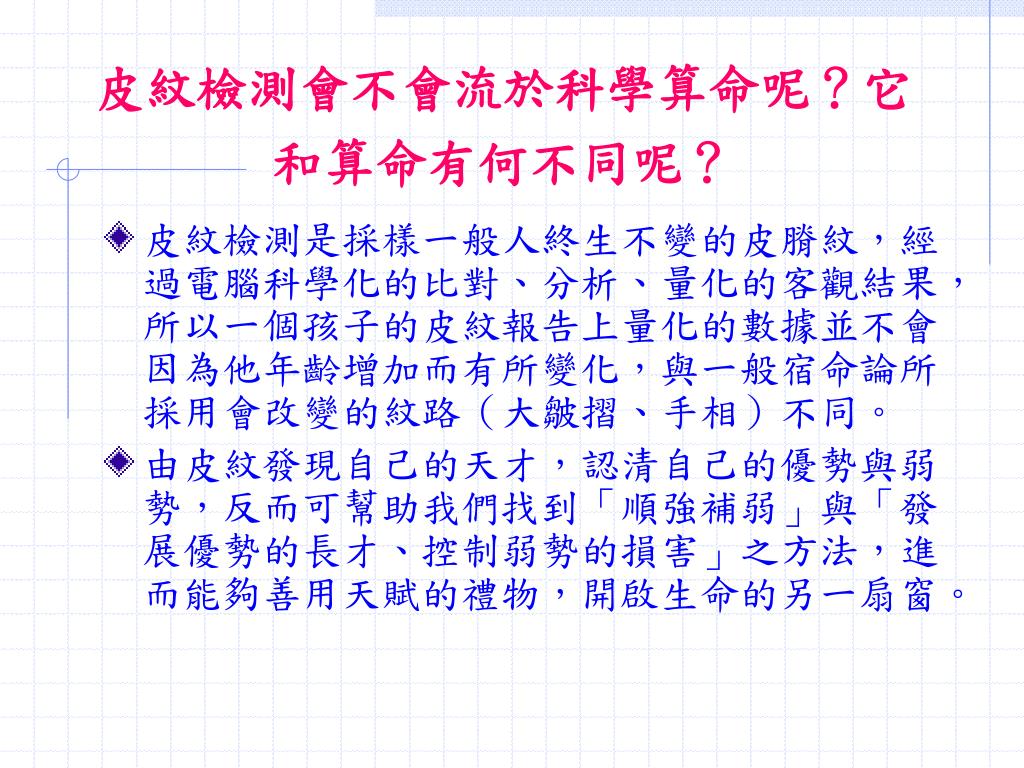 皮紋檢測會不會流於科學算命呢？它
和算命有何不同呢？
皮紋檢測是採樣一般人終生不變的皮膌紋，經
過電腦科學化的比對、分析、量化的客觀結果，
所以一個孩子的皮紋報告上量化的數據並不會
因為他年齡增加而有所變化，與一般宿命論所
採用會改變的紋路（大皺摺、手相）不同。
由皮紋發現自己的天才，認清自己的優勢與弱
勢，反而可幫助我們找到「順強補弱」與「發
展優勢的長才、控制弱勢的損害」之方法，進
而能夠善用天賦的禮物，開啟生命的另一扇窗。